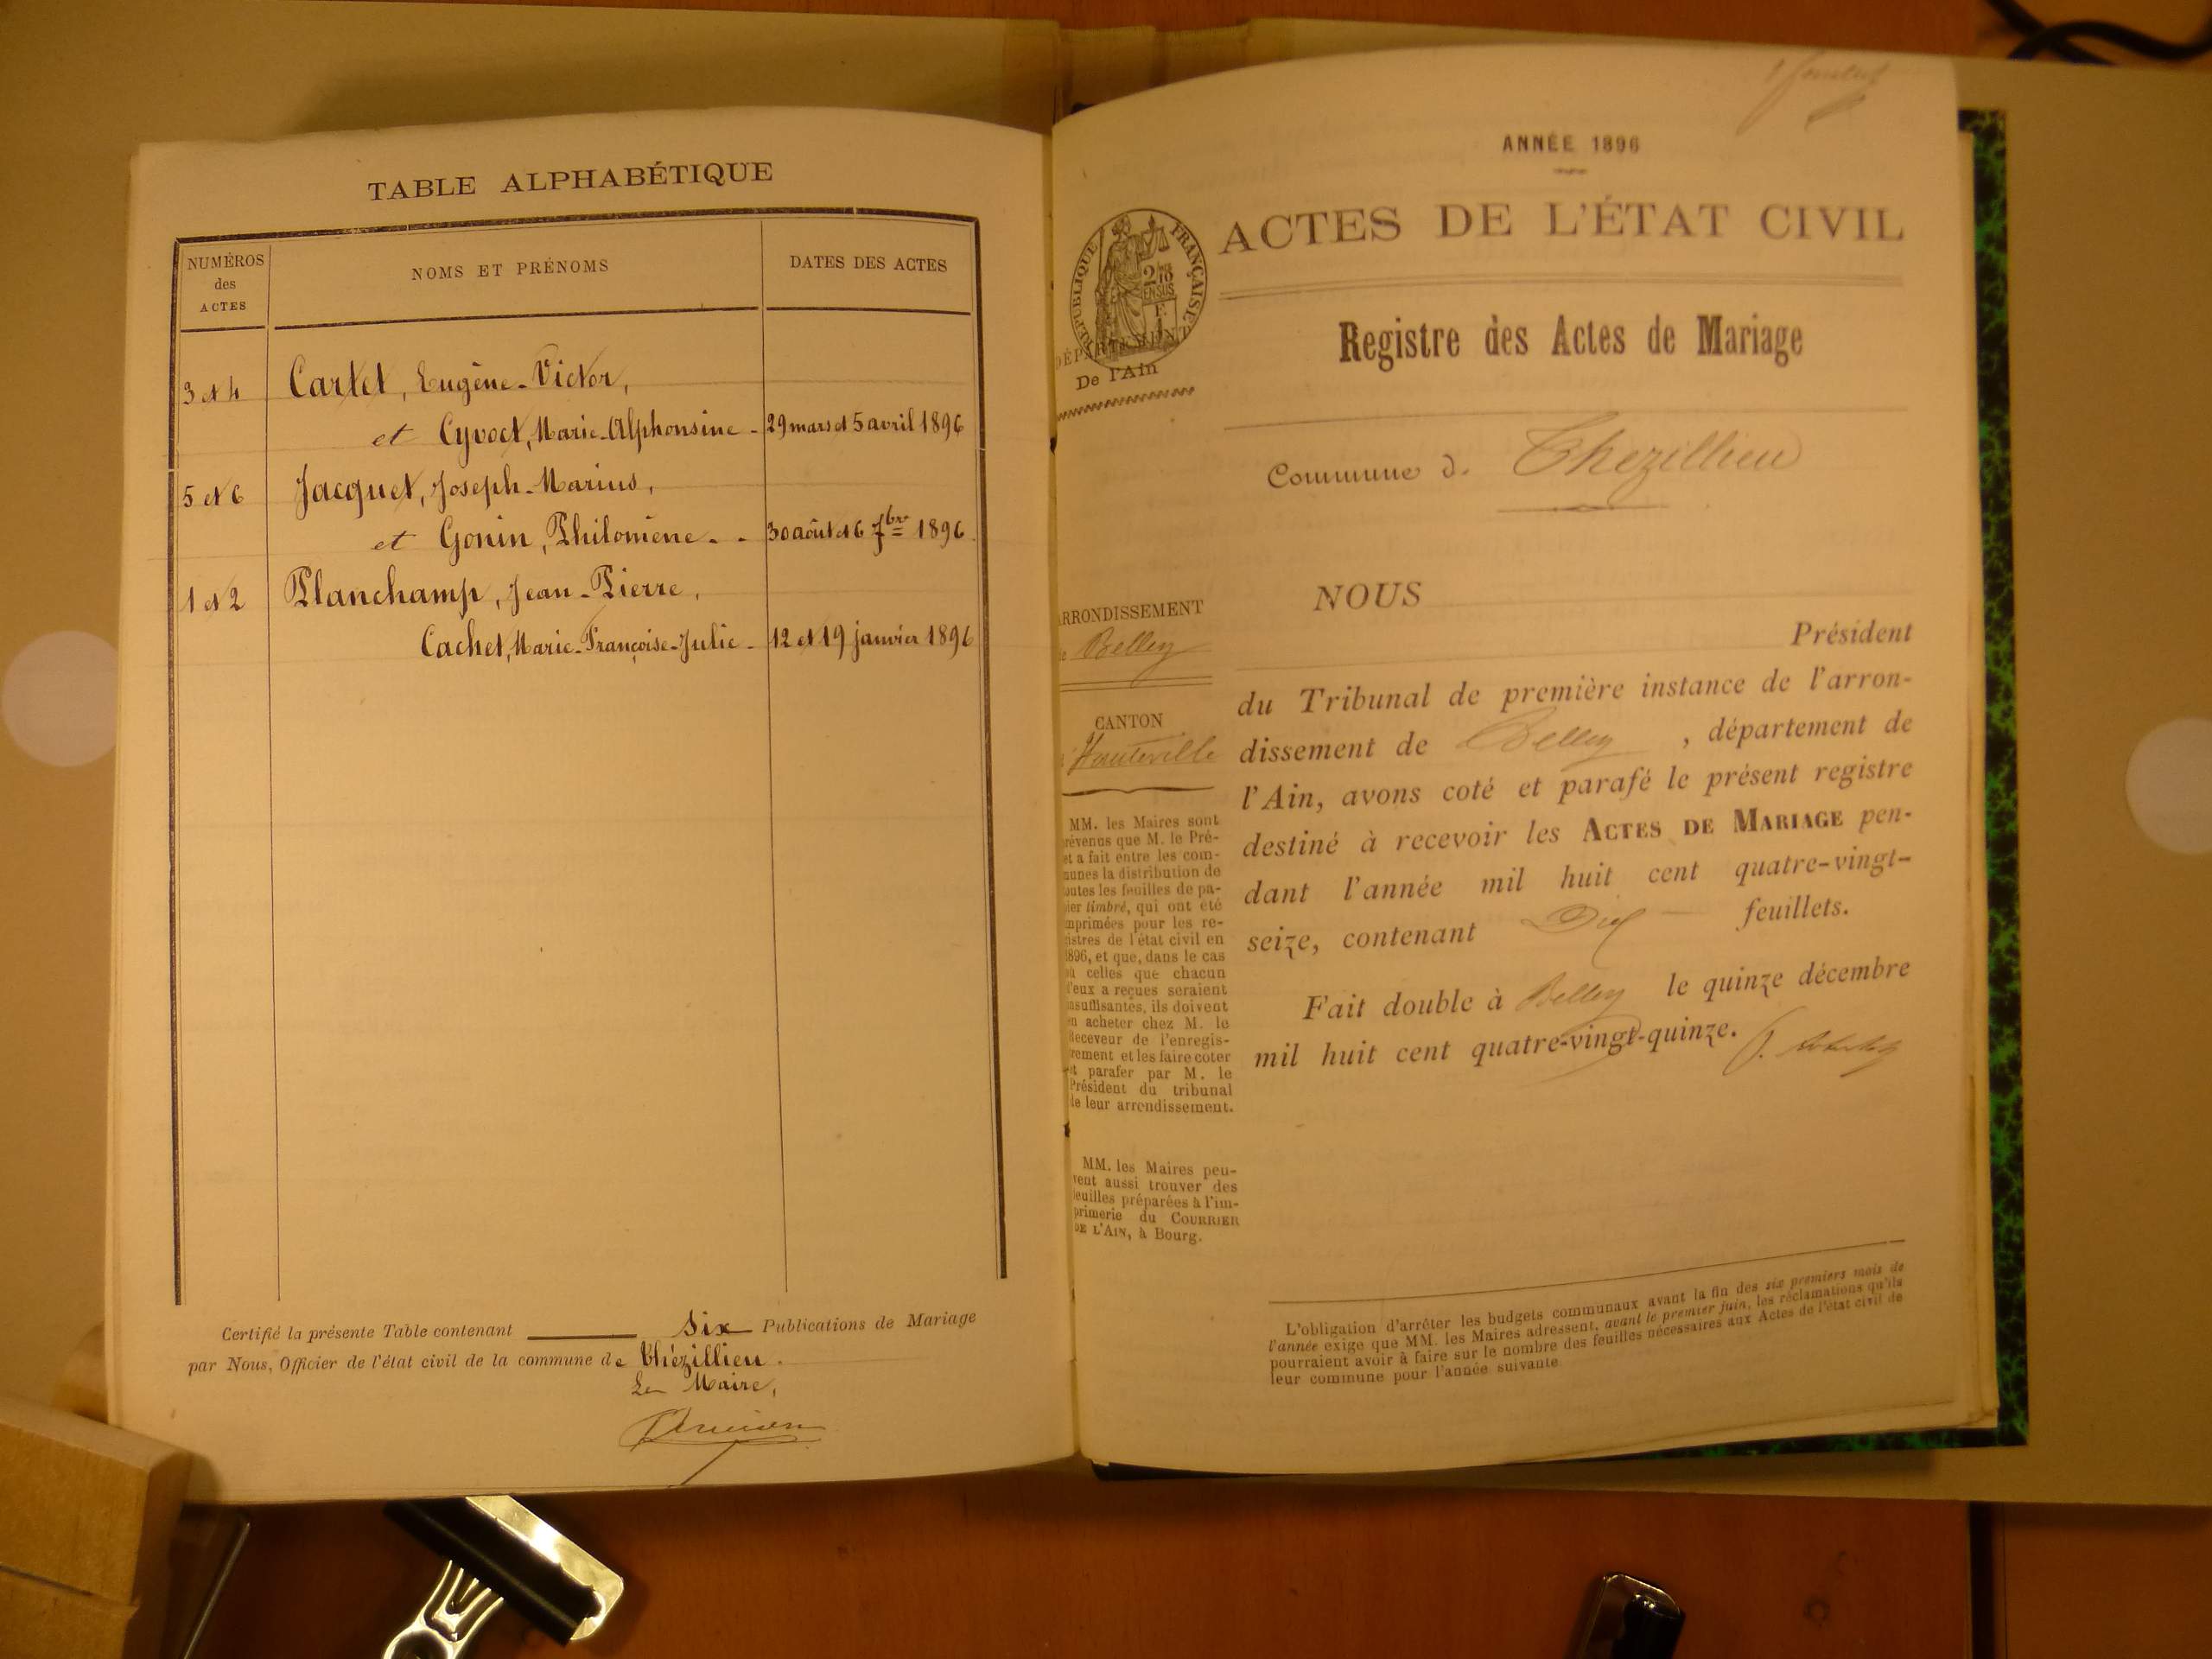 TABLE ALPHABÉTIQUE
NUMÉROS
des
ACTES
NOMS ET PRÉNOMS
DATES DES ACTES
3 et 4
Cartet, Eugène-Victor,
et Cyvoct, Marie-Alphonsine - 29 mars et 5 avril 1896
5 et 6
Jacquet, Joseph-Marius,
et Gonin, Philomène - - 30 août et 6 7bre 1896
1 et 2
Planchamp, Jean-Pierre,
Cachet, Marie-Françoise-Julie - 12 et 19 janvier 1896
Certifié la présente Table contenant six Publications de Mariage
par Nous, Officier de l'état civil de la commune de Thézillieu.
Le Maire,
ANNÉE 1896
ACTES DE L'ÉTAT CIVIL
RÉPUBLIQUE FRANÇAISE
2/10
EN SUS
DÉPARTEMENT
De l'Ain
Registre des Actes de Mariage
Commune de Thezillieu
NOUS
Président
du Tribunal de première instance de l'arron-
dissement de Belley, département de
l'Ain, avons coté et parafé le présent registre
destiné à recevoir les ACTES DE MARIAGE pen-
dant l'année mil huit cent quatre-vingt-
seize, contenant Dix feuillets.
Fait double à Belley le quinze décembre
mil huit cent quatre-vingt-quinze.
ARRONDISSEMENT
Belley
CANTON
Hauteville
MM. les Maires sont
révenus que M. le Pré-
et a fait entre les com-
munes la distribution de
outes les feuilles de pa-
ier timbré, qui ont été
mprimées pour les re-
istres de l'état civil en
1896, et que, dans le cas
où celles que chacun
d'eux a reçues seraient
nsuffisantes, ils doivent
en acheter chez M. le
Receveur de l'enregis-
trement et les faire coter
et parafer par M. le
Président du tribunal
de leur arrondissement.
MM. les Maires peu-
vent aussi trouver des
feuilles préparées à l'im-
primerie du COURRIER
DE L'AIN, à Bourg.
L'obligation d'arrêter les budgets communaux avant la fin des six premiers mois de
l'année exige que MM. les Maires adressent, avant le premier juin, les réclamations qu'ils
pourraient avoir à faire sur le nombre des feuilles nécessaires aux Actes de l'état civil de
leur commune pour l'année suivante